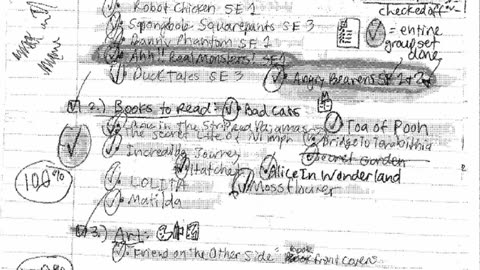 checked off
Robot Chicken SE 1
Spongebob Squarepants SE 3
= entire group set done
Danny Phantom SE 2
Ahh!! Real Monsters! SE 1
Duck Tales SE 3
Angry Beavers SE 1 & 2
2.) Books to Read: Bad Cats
in the Striped Pajamas
Tao of Pooh
The Secret Life of Nimph
Bridge To Terabithia
Incredible Journey
Secret Garden
Hatchet
Alice In Wonderland
100%
LOLITA
Moss flower
Matilda
3.) Art:
"Friend on the Other Side" book front cover